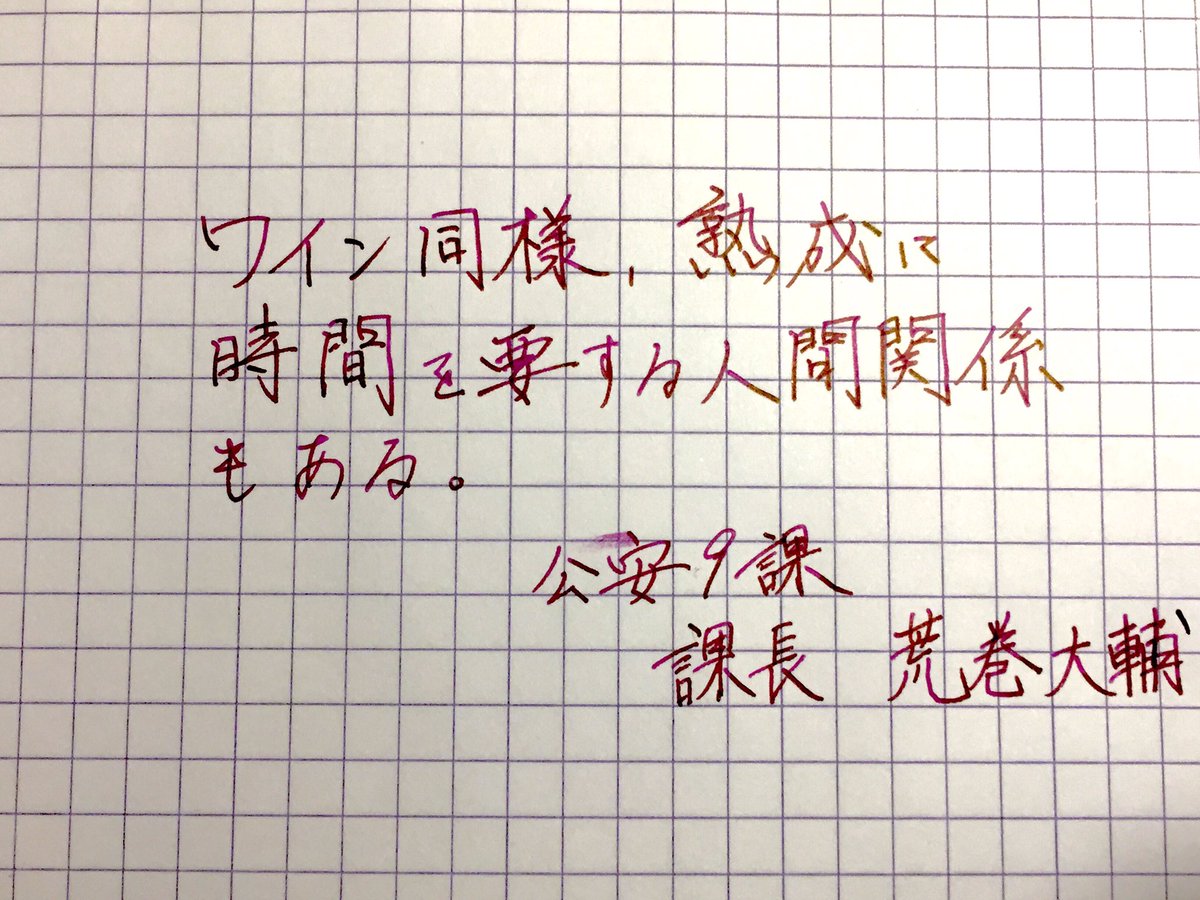 ワイン同様、熟成に
時間を要する人間関係
もある。
公安9課
課長 荒巻大輔